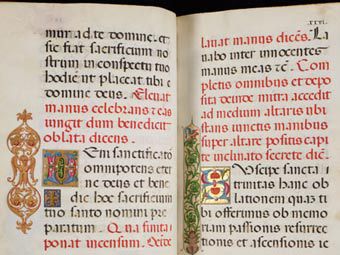 mur a te domine: et
sic fiat sacrificium no
strum in conspectu tuo
hodie ut placeat tibi
domine deus. Elevat
manus celebrans et eas
iungit dum benedicit
oblata dicens.
Veni sanctificator
omnipotens eter
ne deus et bene
dic hoc sacrificium
tuo sancto nomini pre
paratum. Qua finita
ponat incensum. Dein
XXVI.
lavat manus dicens. La
vabo inter innocentes
manus meas etc.
Completis omnibus et depo
sita mitra accedit
ad medium altaris ubi
iunctis manibus
super altare positis capi
te inclinato secrete dic.
Suscipe sancta
trinitas hanc ob
lationem quam ti
bi offerimus ob memo
riam passionis resurre
ctionis et ascensionis ie